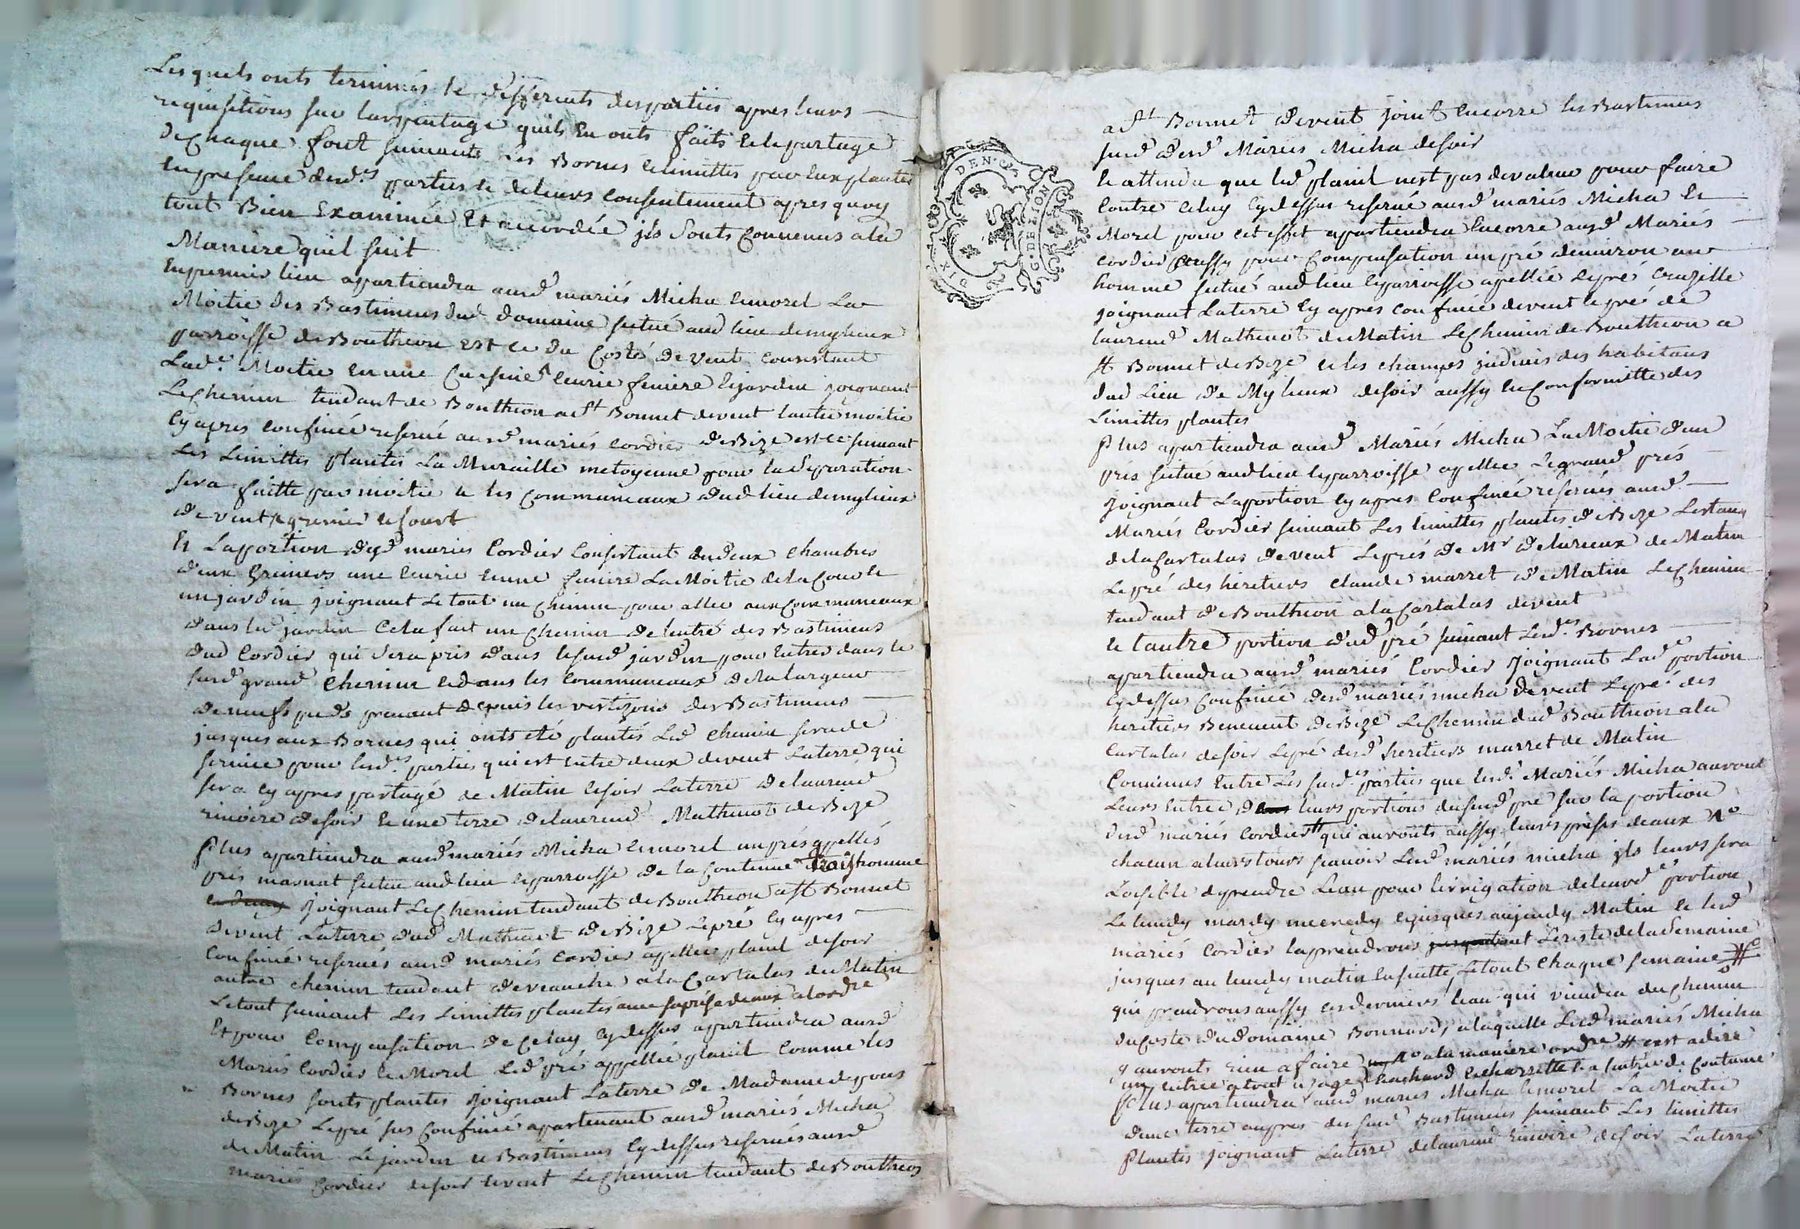 Lesquels onts terminés le differents desparties apres leurs
requisitions sur larpentage quils en onts faits et le partage
de chaque font suivants les Bornes et limittes par eux plantés
en presence desd.s parties et de leurs consentement apres quoy
tout Bien Examinée Et accordée jls sonts convenus a la
Maniere quil suit
En premier lieu appartiendra ausd mariés Micha et morel La
Moitie des Bastimens dud domaine situé aud lieu de mylieux
parroisse de Bouthéon est ce du costé de vent consistant
Lad.e Moitie en une Cuisine Ecurie feniere et jardin joignant
Le Chemin tendant de Bouthéon a St Bonnet de vent lautre moitie
Cy apres confinée reservé ausd mariés Cordier de Bize est ce suivant
Les Limittes plantés La Muraille metoyenne pour la Separation
sera faitte par moitie et les Communeaux dud lieu de mylieux
de vent
Et La portion desd mariés Cordier Consistant en deux Chambres
deux Greniers une Ecurie et une feniere La Moitie de la Cour et
un jardin joignant Le tout un chemin pour aller aux Communeaux
dans led jardin Cela fait un Chemin de lentré des Bastimens
dud Cordier qui sera pris dans le susd jardin pour Entrer dans le
susd grand Chemin et dans les Communeaux de la largeur
de neufs pieds prenant depuis les des Bastimens
jusques aux Bornes qui onts eté plantés Led Chemin sera de
service pour lesd.s parties qui est Entre deux de vent La terre qui
sera Cy apres partagé de Matin et soir La terre de laurend
riviere de soir et une terre de laurend Mathinot de Bize
Plus apartiendra ausd mariés Micha et morel un prés appellés
pres marnat situé aud lieu et parroisse de la Contenue Trois homme
joignant Le Chemin tendant de Bouthéon a St Bonnet
de vent La terre dud Mathinot de Bize Le pré Cy apres
Confiné reservés ausd mariés Cordier appellé pland de soir
autre chemin tendant de veauche a la Cartalas du Matin
Le tout suivant Les Limittes plantés avec sa prise deaux
Et pour Compensation de Celuy Cy dessus apartiendra ausd
Mariés Cordier et Morel Led pré appellée planil Comme les
Bornes sonts plantés joignant La terre de Madame de pons
de Bize Le pré sus Confinée apartenant ausd mariés Micha
de Matin Le jardin et Bastimens Cy dessus reservés ausd
mariés Cordier de soir et vent Le Chemin tendant de Bouthéon
a St Bonnet de vent joint Encorre les Bastimens
susd desd Mariés Micha de soir
Et attendu que led planil n'est pas de valeur pour faire
Contre Celuy Cy dessus reservé ausd mariés Micha et
Morel pour cet effet appartiendra Encorre ausd Mariés
Cordier aussy pour Compensation un pré denviron un
homme situé aud lieu et parroisse apellée Le pré
joignant La terre Cy apres confinée de vent le pré de
laurend Mathinot de Matin Le Chemin de Bouthéon a
St Bonnet de Bize et les champs des habitans
dud Lieu de Mylieux de soir aussy en Conformitte des
Limittes plantés
Plus apartiendra ausd Mariés Micha La Moitie dun
pres situé aud lieu et parroisse apellée Le grand prés
joignant La portion Cy apres Confinée reservés ausd
Mariés Cordier suivant Les limittes plantés de Bize Lestang
de la Cartalas de vent Le prés de Mr delurieux de Matin
Le pré des heretiers Claude marret de Matin Le Chemin
tendant de Bouthéon a la Cartalas de vent
Et lautre portion dud pré suivant lesd.s Bornes
apartiendra ausd mariés Cordier joignant Lad.e portion
Cy dessus Confinée desd mariés micha de vent Le pré des
heretiers Benevent de Bize Le Chemin dud Bouthéon a la
Cartalas de soir Le pré desd heretiers marret de Matin
Convenus Entre Les susd.s parties que Lesd.s Mariés Micha auront
Leurs Entrée leurs portions du susd pré sur la portion
desd mariés Cordier qui auronts aussy leurs prises deaux
chacun a leurs tours scavoir Lesd mariés micha jls leurs sera
Loisible de prendre Leau pour lirrigation de leurd.e portion
Le lundy mardy mecredy et jusques au jeudy Matin et lesd
mariés Cordier la prendrons Le reste de la Semaine
jusques au lundy matin Ensuitte Le tout Chaque semaine
qui prendrons aussy ces derniers Leau qui viendra du Chemin
du Costé du domaine Bonnard a laquelle Lesd mariés Micha
n'auronts rien a faire a la maniere ordre est a dire
un entrée a tout usage et charrette a lentrée de Coutume
Plus apartiendra ausd mariés Micha et morel La Moitie
dune terre aupres du susd Bastimens suivant Les limittes
Plantés joignant La terre de laurend riviere de soir La terre
DEN.
G. DE LION
DIX